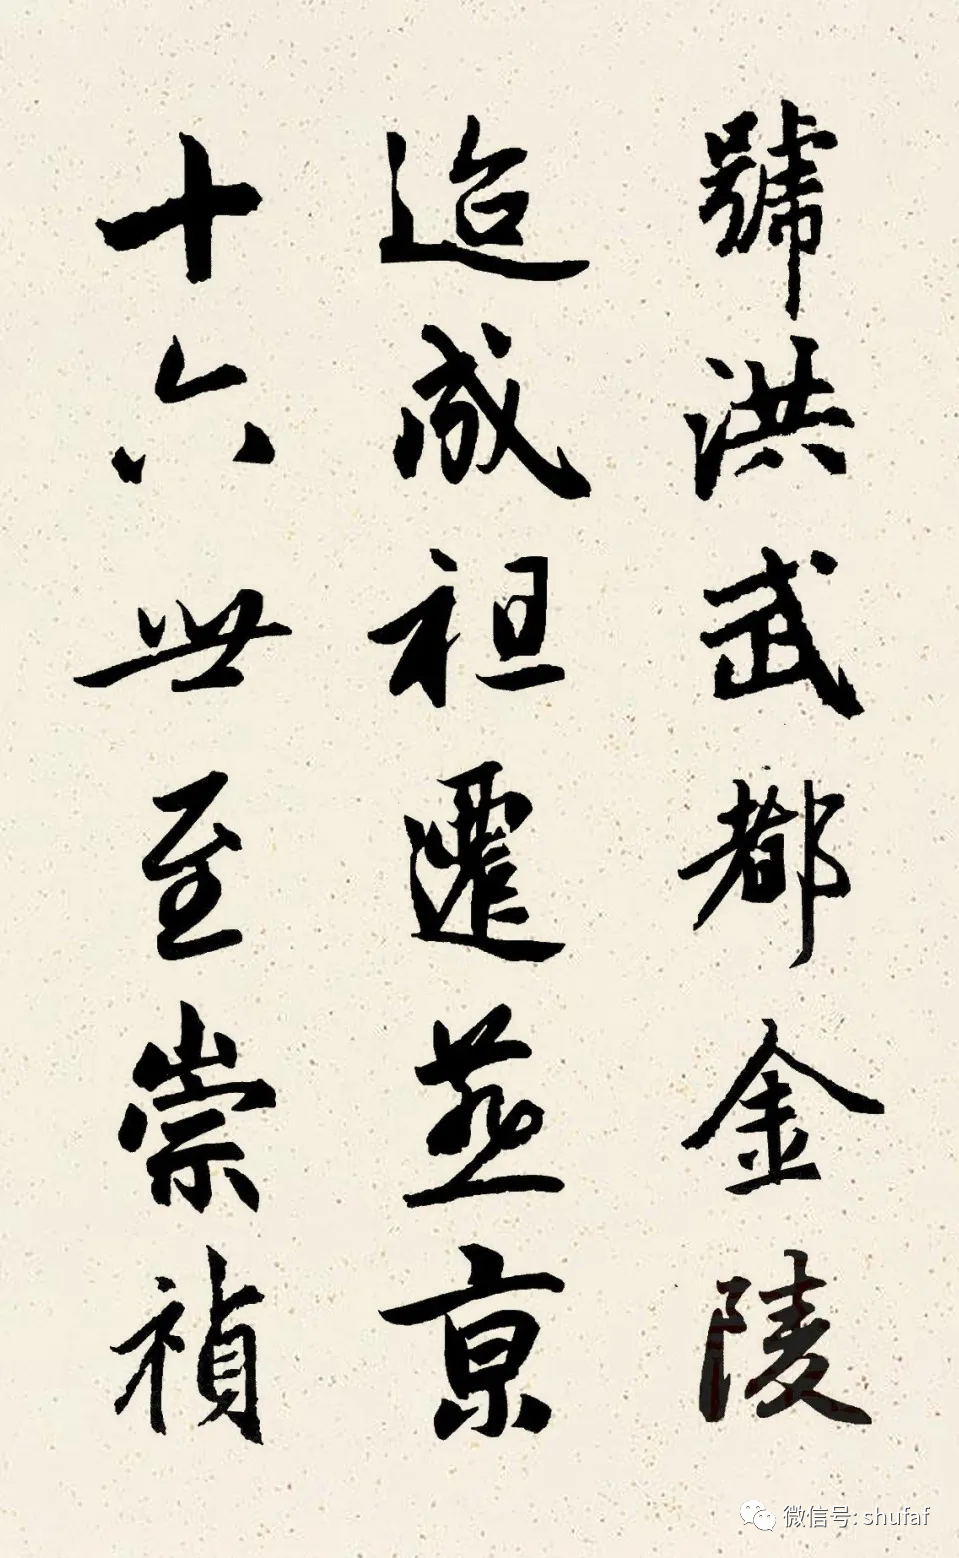 號洪武都金陵
迨成祖遷燕京
十六世至崇禎
微信号: shufaf